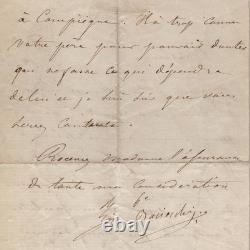 à Compiègne. Il a trop connu
votre père pour pouvoir douter
qu'il ne fasse ce qui dépendra
de lui et je suis sûr que vous
serez contente.
Recevez Madame l'assurance
de toute ma considération